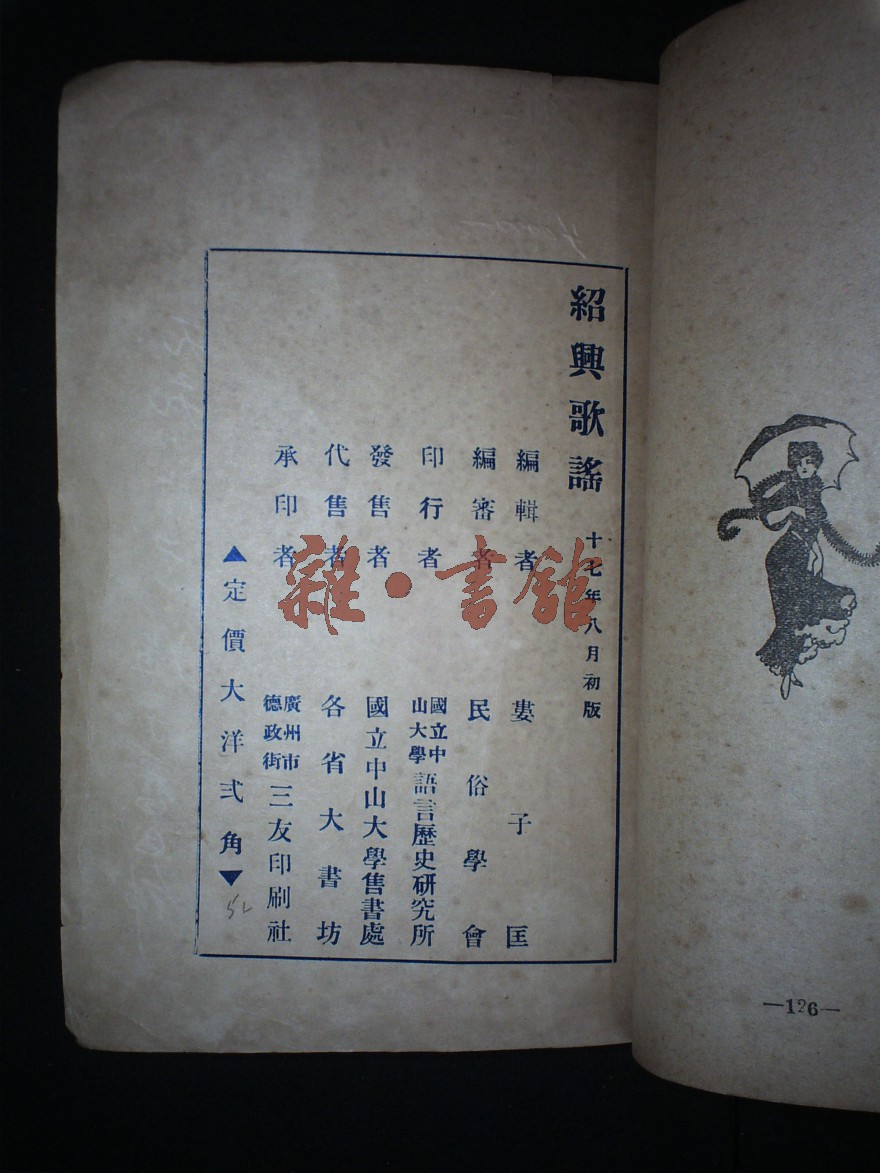 紹興歌謠
十七年八月初版
編輯者 婁子匡
編審者 民俗學會
印行者 國立中山大學語言歷史研究所
發售者 國立中山大學售書處
代售者 各省大書坊
承印者 廣州市德政街三友印刷社
▲定價大洋弍角▼
雜·書館
—126—